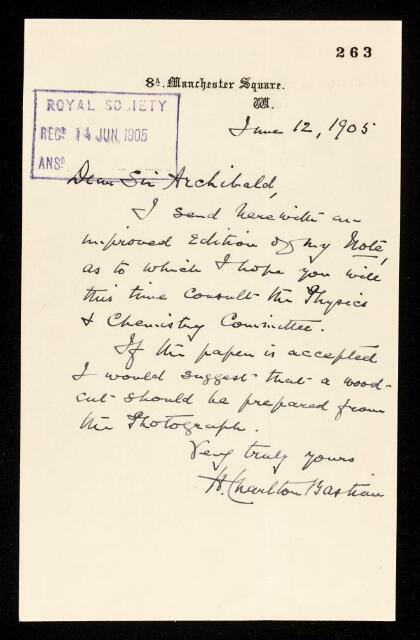 263
8A. Manchester Square.
W.
ROYAL SOCIETY
RECD 14 JUN. 1905
ANSD
June 12, 1905
Dear Sir Archibald,
I send herewith an
improved Edition of my Note,
as to which I hope you will
this time consult the Physics
& Chemistry Committee.
If the paper is accepted
I would suggest that a wood-
cut should be prepared from
the Photograph.
Very truly yours
H. Charlton Bastian